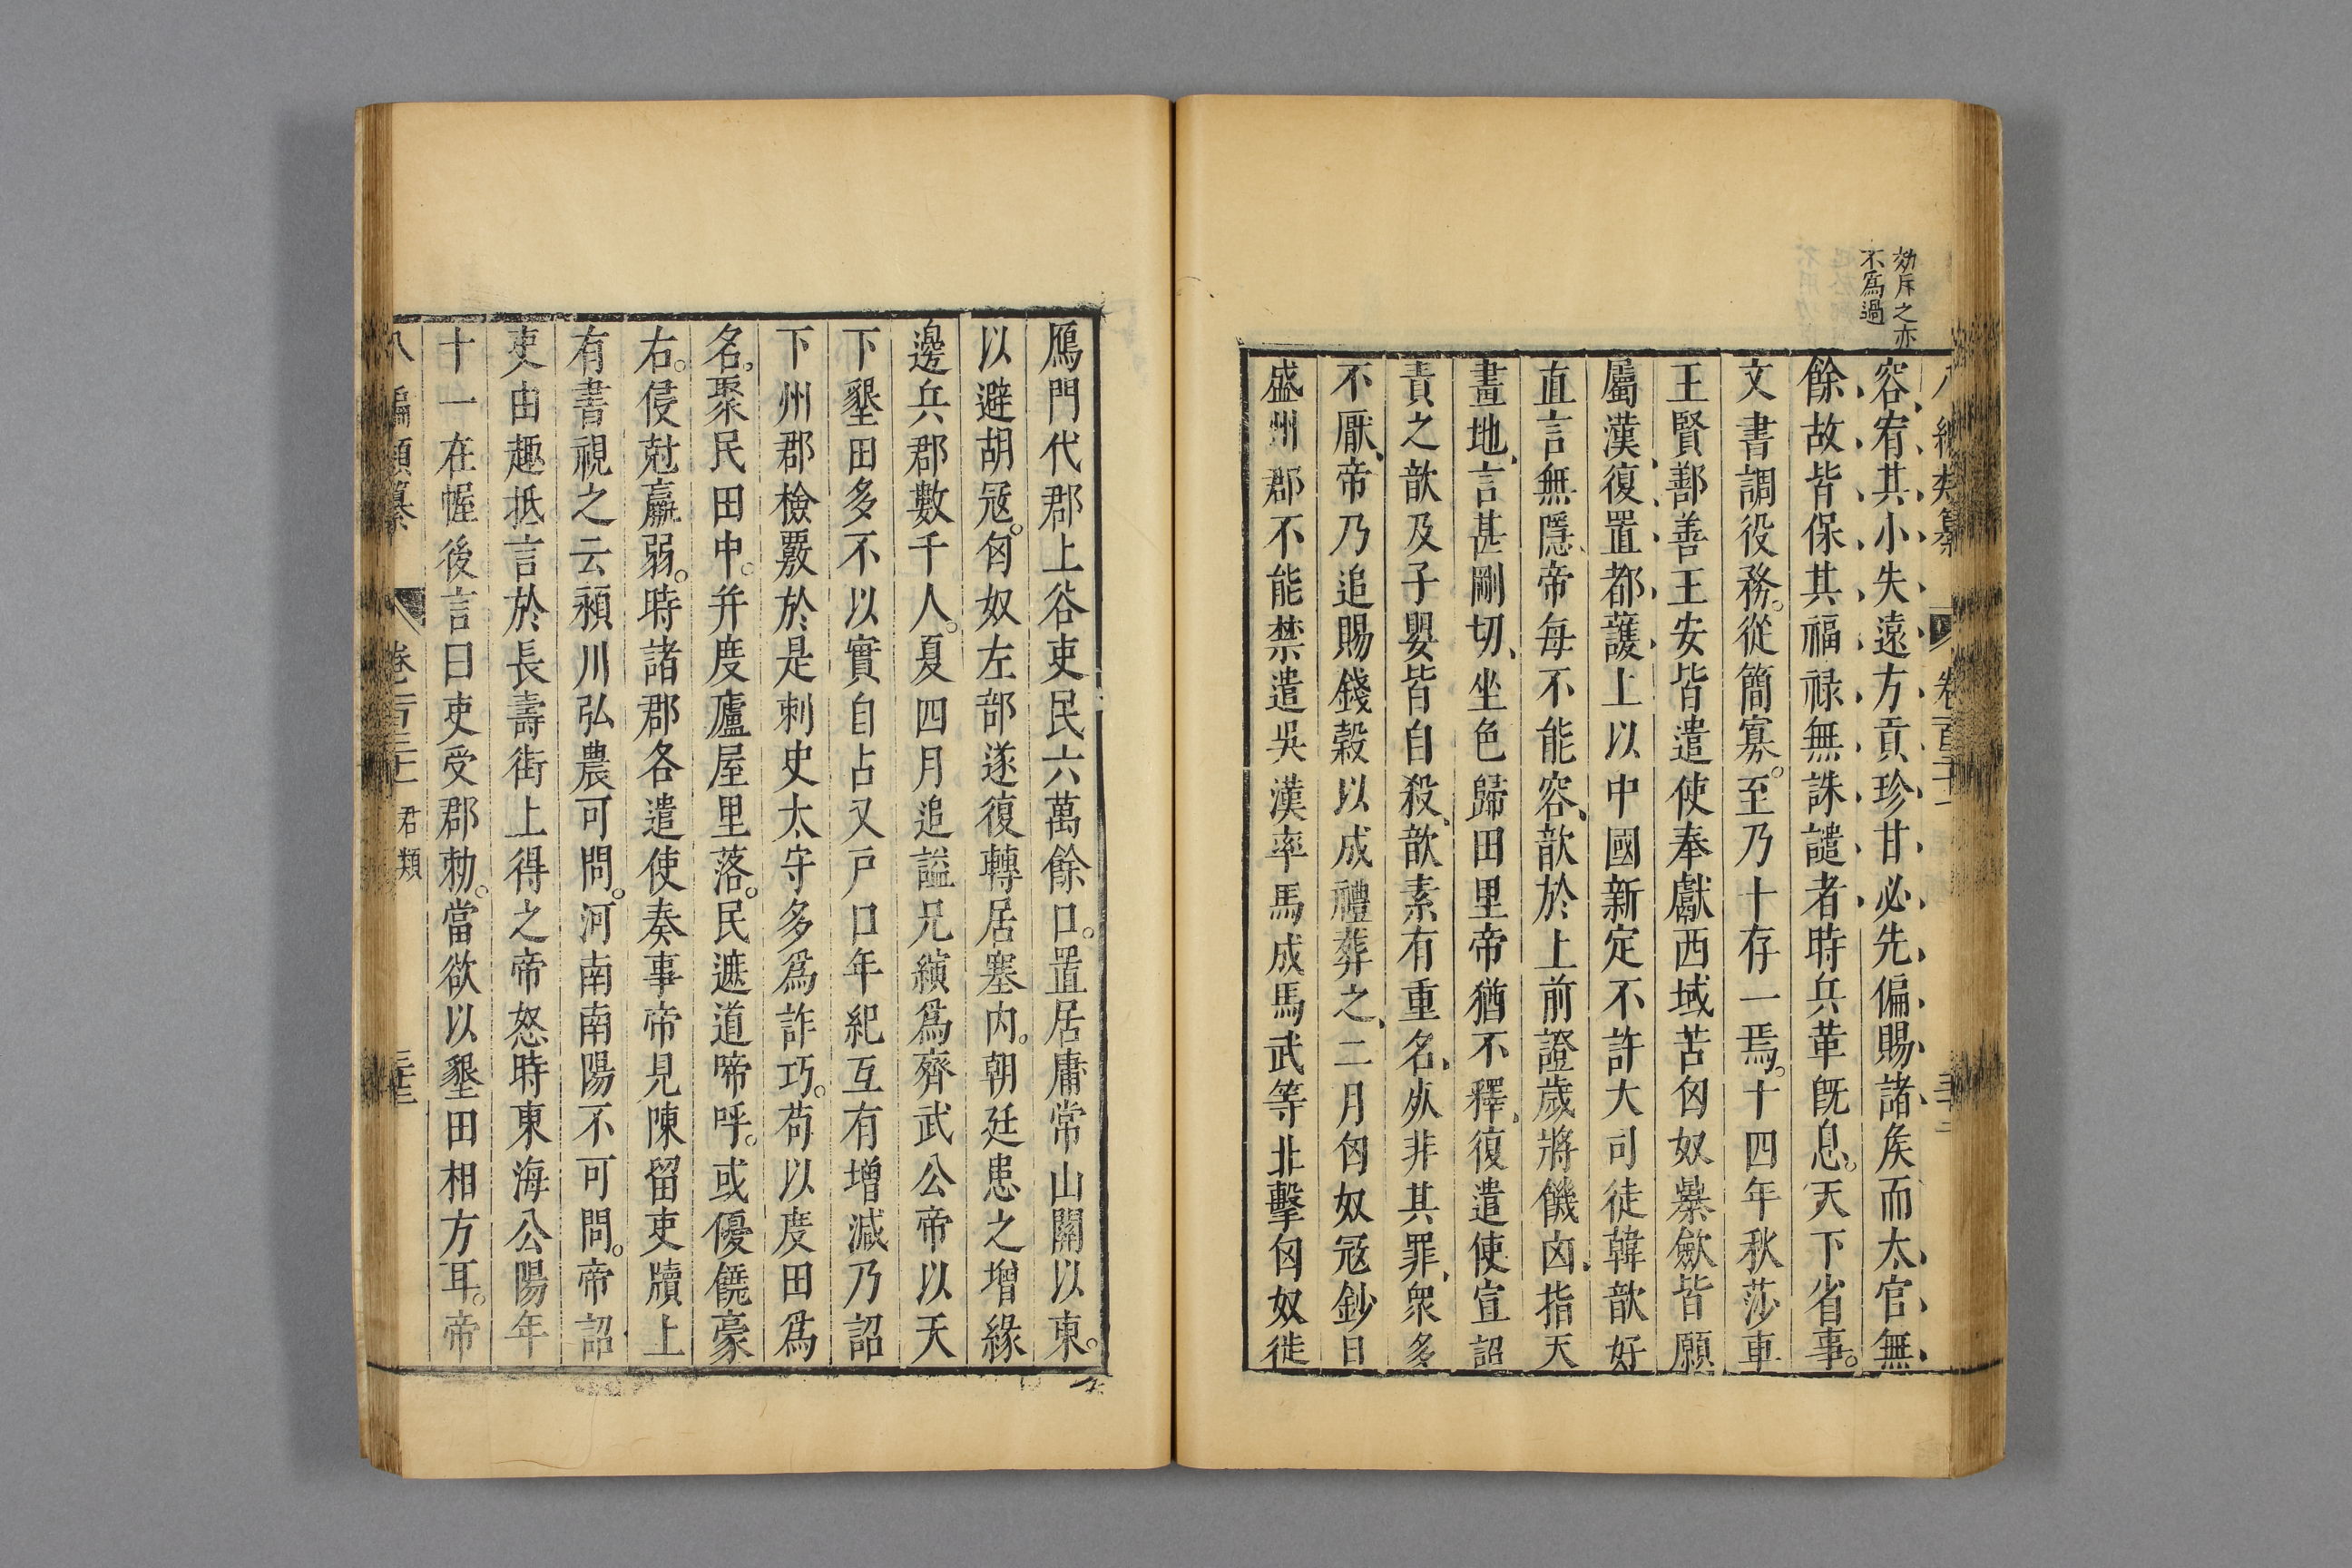 劾斥之亦
不爲過
容宥其小失遠方貢珍甘必先偏賜諸矦而太官無
餘故皆保其福禄無誅譴者時兵革旣息。天下省事。
文書調役務。從簡寡。至乃十存一焉。十四年秋莎車
王賢鄯善王安皆遣使奉獻西域苦匈奴㬥歛皆願
屬漢、復置都護上以中國新定不許大司徒韓歆好
直言無隱、帝每不能容、歆於上前證歲將饑凶、指天
畫地、言甚剛切、坐免歸田里帝猶不釋、復遣使宣詔
責之歆及子嬰皆自殺、歆素有重名、死非其罪、衆多
不厭、帝乃追賜錢穀以成禮葬之、二月匈奴冦鈔日
盛州郡不能禁遣吳漢率馬成馬武等北擊匈奴徙
鴈門代郡上谷吏民六萬餘口。置居庸常山關以東。
以避胡冦。匈奴左部遂復轉居塞内。朝廷患之增緣
邊兵郡數千人。夏四月追謚兄縯爲齊武公帝以天
下墾田多不以實自占又戸口年紀互有增減乃詔
下州郡檢覈於是刺史太守多爲詐巧。苟以度田爲
名、聚民田中。并度廬屋里落。民遮道啼呼。或優饒豪
右。侵尅羸弱。時諸郡各遣使奏事帝見陳留吏牘上
有書視之云潁川弘農可問。河南南陽不可問。帝詔
吏由趣抵言於長壽街上得之帝怒時東海公陽年
十一在幄後言曰吏受郡勑。當欲以墾田相方耳。帝
八編類纂 卷百三十一 君類